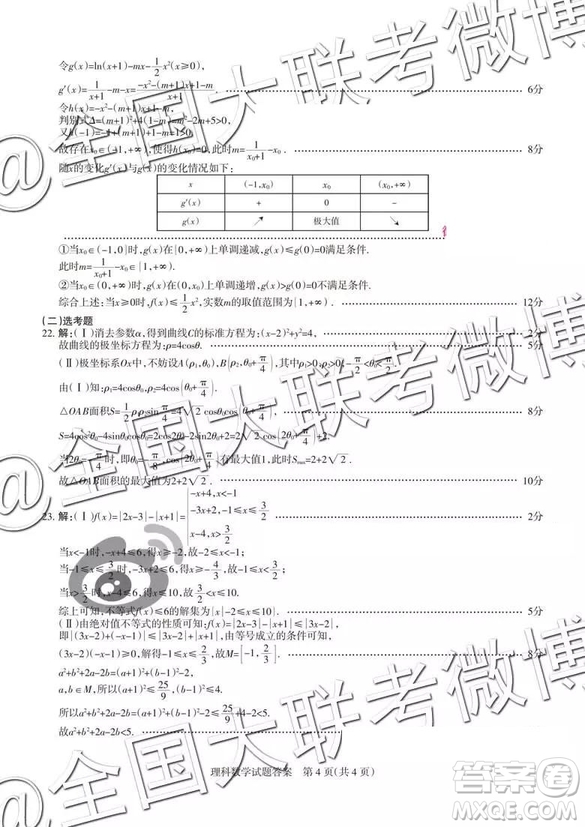 令g(x)=ln(x+1)-mx-1/2x²(x≥0),
g′(x)=1/(x+1)-m-x=(-x²-(m+1)x+1-m)/(x+1). 6分
令h(x)=-x²-(m+1)x+1-m,
判别式Δ=(m+1)²+4(1-m)=m²-2m+5>0,
故存在x₀∈(-1,+∞),使得h(x₀)=0,此时m=1/(x₀+1)-x₀. 8分
随x的变化g′(x)与g(x)的变化情况如下:
x (-1,x₀) x₀ (x₀,+∞)
g′(x) + 0 -
g(x) ↗ 极大值 ↘
①当x₀∈(-1,0]时,g(x)在[0,+∞)上单调递减,g(x)≤g(0)=0满足条件.
此时m=1/(x₀+1)-x₀∈[1,+∞).
②当x₀∈(0,+∞)时,g(x)在[0,x₀)上单调递增,g(x)>g(0)=0不满足条件.
综合上述:当x≥0时,f(x)≤1/2x²,实数m的取值范围为[1,+∞). 12分
(二)选考题
22.解:(Ⅰ)消去参数α,得到曲线C的标准方程为:(x-2)²+y²=4,
故曲线的极坐标方程为:ρ=4cosθ.
(Ⅱ)极坐标系Ox中,不妨设A(ρ₁,θ₀),B(ρ₂,θ₀+π/4),其中
由(Ⅰ)知:ρ₁=4cosθ₀,ρ₂=4cos(θ₀+π/4).
△OAB面积S=1/2ρ₁ρ₂sinπ/4=4√2cosθ₀cos(θ₀+π/4). 8分
S=4cos²θ₀-4sinθ₀cosθ₀=2cos2θ₀-2sin2θ₀+2=2√2cos(2θ₀+π/4)+2.
当2θ₀=-π/4时,即θ₀=-π/8,cos(2θ₀+π/4)有最大值1,此时Smax=2+2√2.
故△OAB面积的最大值为2+2√2. 10分
23.解:(Ⅰ)f(x)=|2x-3|-|x+1|={-x+4,x<-1
-3x+2,-1≤x≤3/2
x-4,x>3/2 2分
当x<-1时,-x+4≤6,得x≥-2,故-2≤x<-1;
当-1≤x≤3/2时,-3x+2≤6,得x≥-4/3,故-1≤x≤3/2;
当x>3/2时,x-4≤6,得x≤10,故3/2<x≤10;
综上可知,不等式f(x)≤6的解集为{x|-2≤x≤10}. 5分
(Ⅱ)由绝对值不等式的性质可知f(x)=|2x-3|-|x+1|≤|3x-2|,
即|(3x-2)+(-x-1)|≤|3x-2|+|x+1|,由等号成立的条件可知,
(3x-2)(-x-1)≥0,即-1≤x≤2/3,故M=[-1,2/3]. 8分
a²+b²+2a-2b=(a+1)²+(b-1)²-2,
a,b∈M,所以(a+1)²≤25/9,(b-1)²≤4.
所以a²+b²+2a-2b=(a+1)²+(b-1)²-2≤25/9+4-2<5.
故a²+b²+2a-2b<5.
理科数学试题答案 第 4 页(共 4 页)
@全国大联考微博
@全国大联考微博
@全国大联考微博
答案卷
MXQE.COM